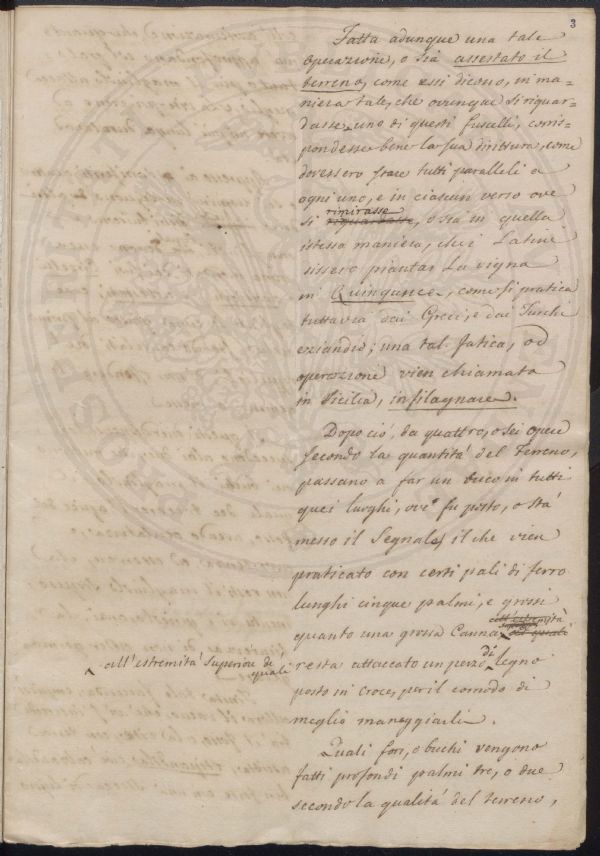 3
Fatta adunque una tale
operazione, o sia assestato il
terreno, come essi dicono, in ma=
niera tale, che ovunque si riguar=
dasse uno di questi fuscelli, corris=
pondesse bene la sua dirittura, come
dovessero stare tutti paralleli a
ogni uno, e in ciascun verso ove
rimirasse
si riguardasse, o sia in quella
istessa maniera, che i Latini
dissero piantar la vigna
in Quinqunce, come si pratica
tuttavia dai Greci, e dai Turchi
eziandio; una tal fatica, od
operazione vien chiamata
in Sicilia, infilagnare.
Dopo ciò, da quattro, o sei opere
secondo la quantità del Terreno,
passano a far un buco in tutti
quei luoghi, ov'e fu posto, o stà
messo il Segnale, il che vien
praticato con certi pali di ferro
lunghi cinque palmi, e grossi
all'estremità
quanto una grossa Canna dei quali
all'estremità superiori de
quali
resta attaccato un pezzo di legno
posto in croce, per il comodo di
meglio maneggiarli.
Quali fori, o buchi vengono
fatti profondi palmi tre, o due
secondo la qualità del terreno,